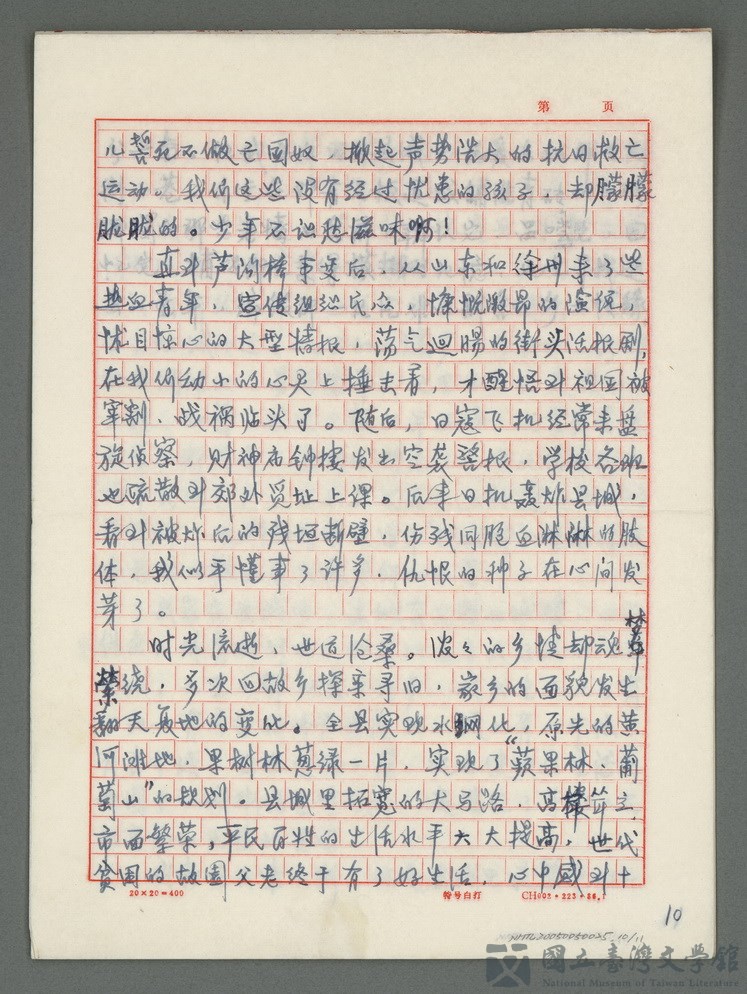 第　页
儿誓死不做亡国奴，掀起声势浩大的抗日救亡
运动。我们这些没有经过忧患的孩子，却朦朦
胧胧的。少年不识愁滋味啊！
直到芦沟桥事变后，从山东和徐州来了些
热血青年，宣传组织民众，慷慨激昂的演说，
怵目惊心的大型情报，荡气迴腸的街头活报剧，
在我们幼小的心灵上捶击着，才醒悟到祖国被
宰割，战祸临头了。随后，日寇飞机经常来盘
旋侦察，财神庙钟楼发出空袭警报，学校各班
也疏散到郊外觅址上课。后来日机轰炸县城，
看到被炸后的残垣断壁，伤残同胞血淋淋的肢
体，我似乎懂事了许多，仇恨的种子在心间发
芽了。
时光流逝，世道沧桑。浓々的乡情却魂梦
萦绕，多次回故乡探亲寻旧，家乡的面貌发生
翻天复地的变化。全县实现水网化，原先的黄
河滩地，果树林葱绿一片，实现了“蘋果林、葡
萄山”的规划。县城里拓宽的大马路，高楼耸立，
市面繁荣，平民百姓的生活水平大大提高，世代
贫困的故园父老终于有了好生活，心中感到十
20×20=400
特号白打
10
NMTL20050050025 10/11
國立臺灣文學館
National Museum of Taiwan Literature